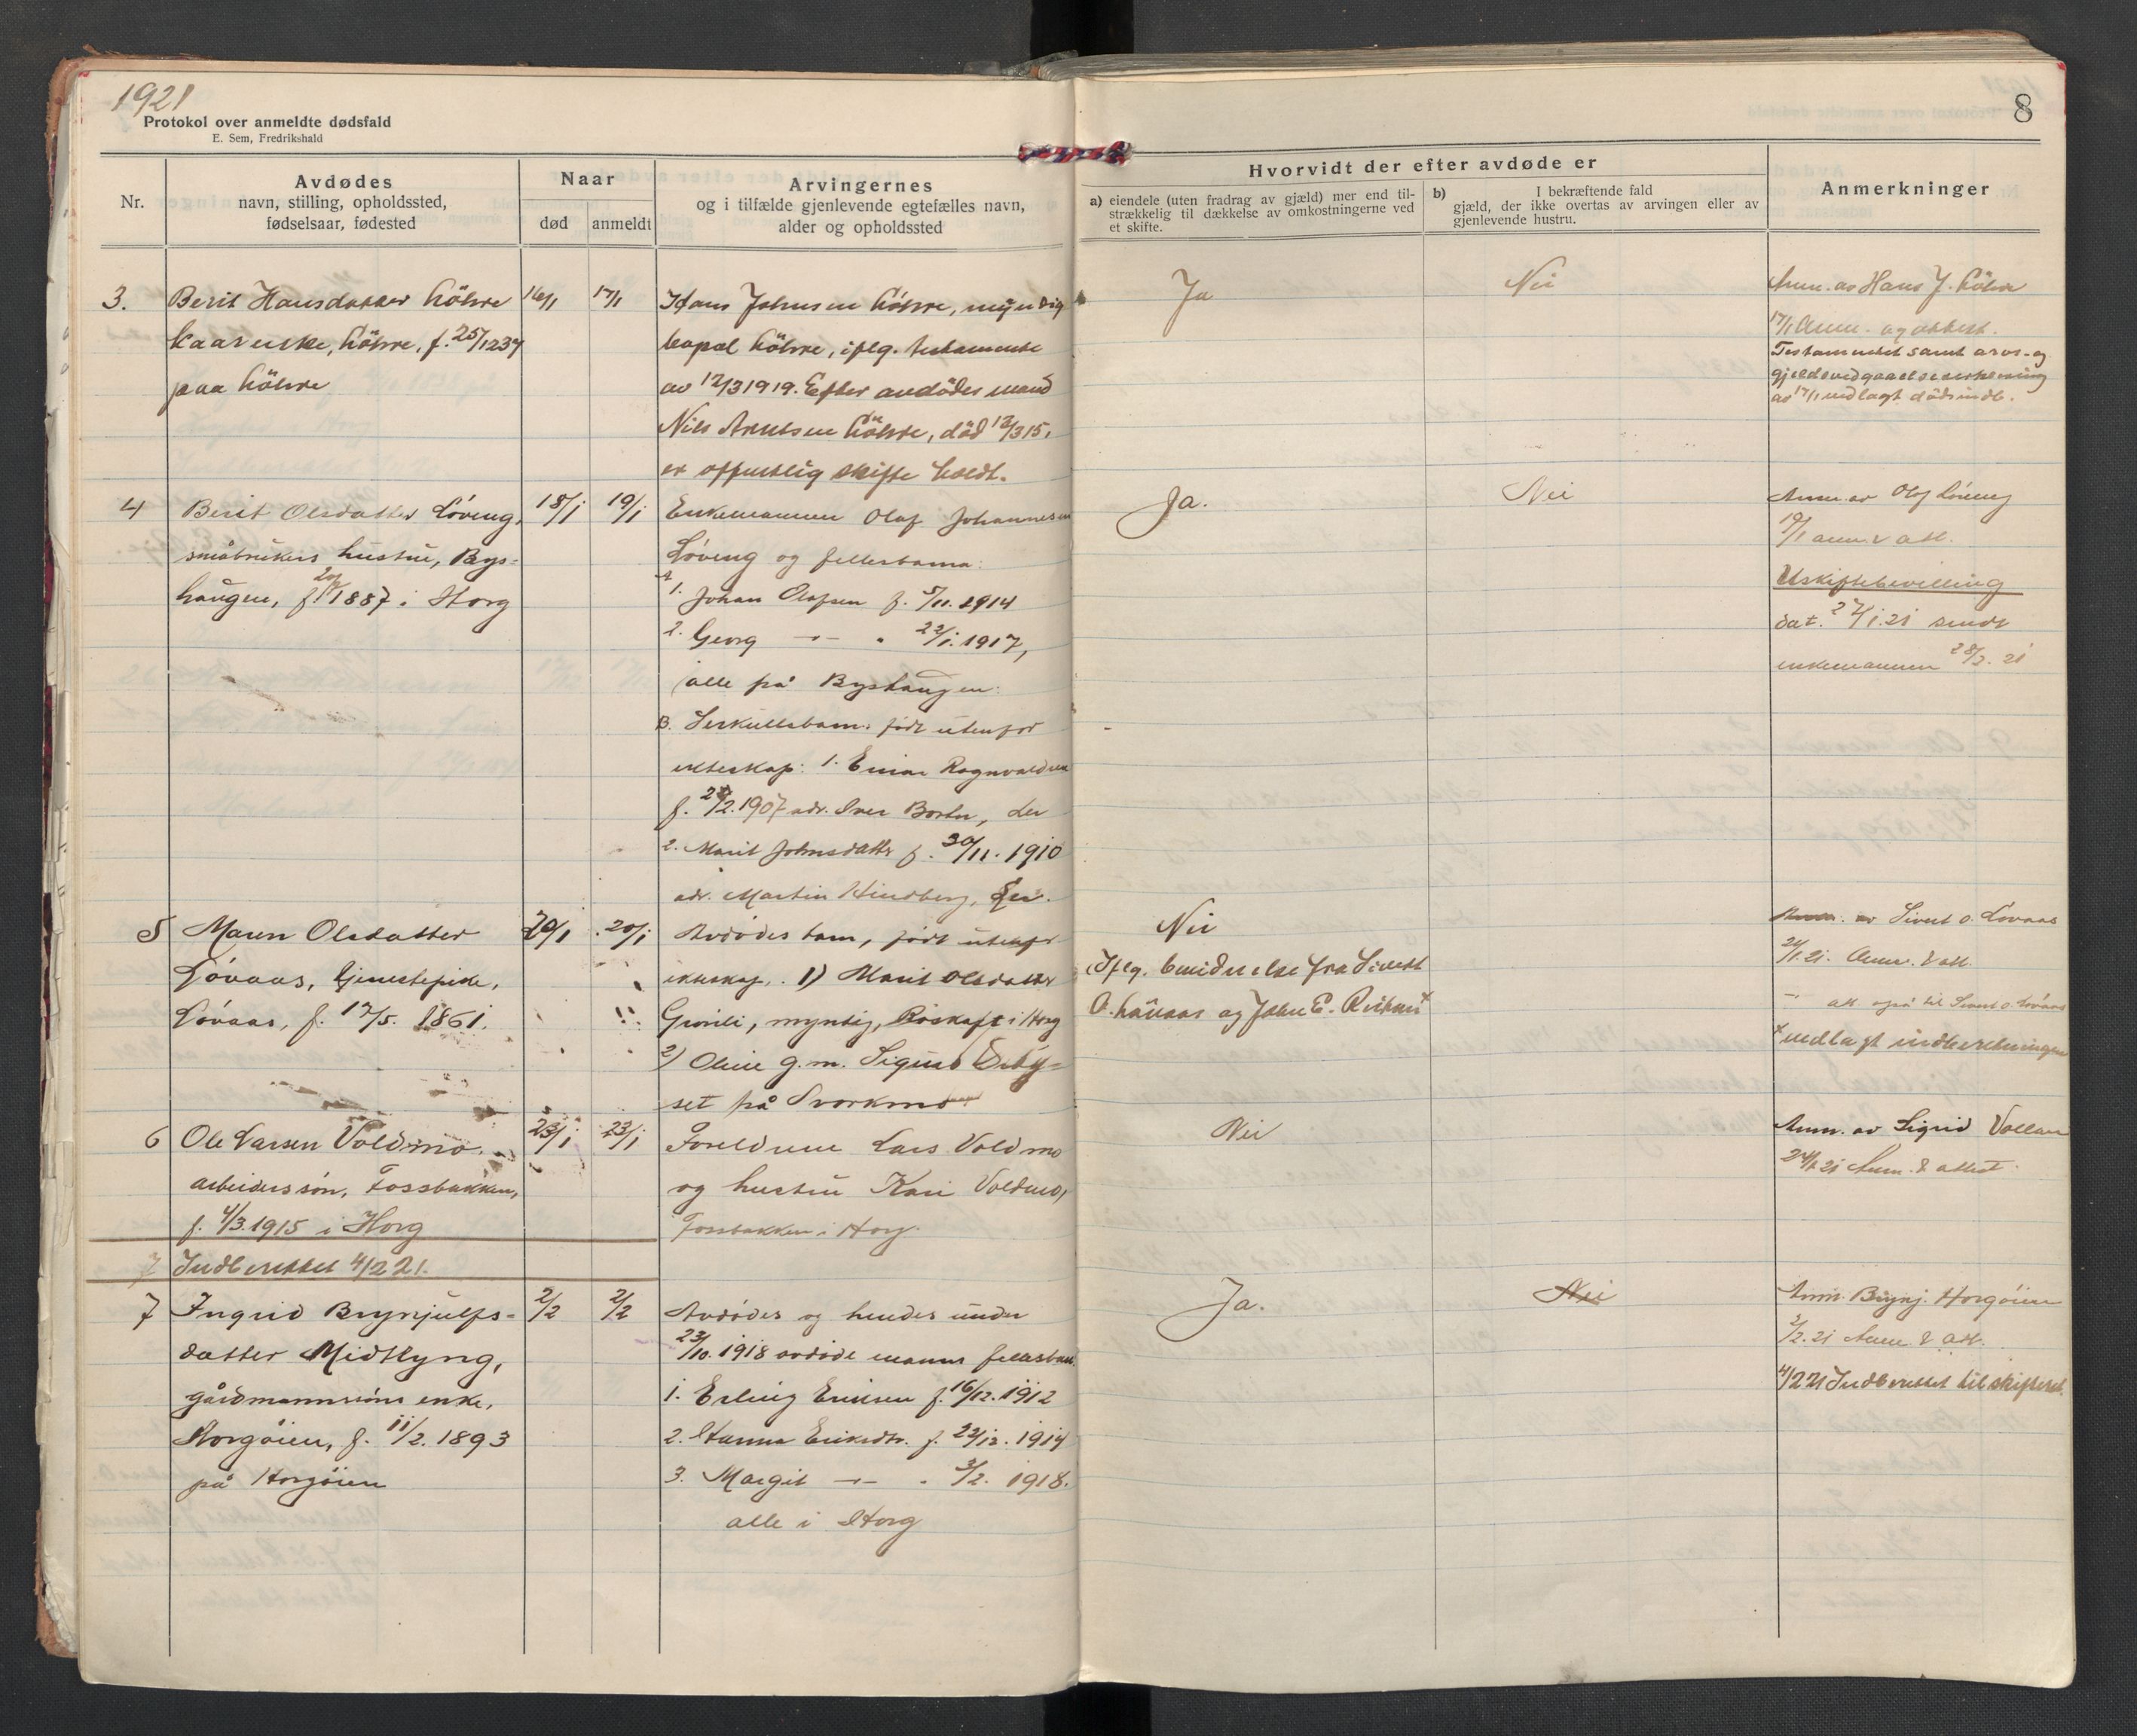 1921
Protokol over anmeldte dødsfald
E. Sem, Fredrikshald
8
Nr.
Avdødes
navn, stilling, opholdssted,
fødselsaar, fødested
Naar
død
anmeldt
Arvingernes
og i tilfælde gjenlevende egtefælles navn,
alder og opholdssted
Hvorvidt der efter avdøde er
a) eiendele (uten fradrag av gjæld) mer end til-
strækkelig til dækkelse av omkostningerne ved
et skifte.
b) I bekræftende fald
gjæld, der ikke overtas av arvingen eller av
gjenlevende hustru.
Anmerkninger
3. Berit Hansdatter Löhre
Löhre, f. 25/1
paa Löhre
16/1
17/1
Hans Johnsen Löhre, myndig
Löhre, iflg. testamente
av 12/3 1919. Efter avdödes mand
Nils Arntsen Löhre, död 12/3 15,
er offentlig skifte holdt.
Ja
Nei
Anm. av Hans J. Löhre
17/1 Anm. og attest.
Testamentet samt arvs- og
gjeldsvedgaaelseserklæring
av 17/1 vedlagt dödsindb.
4 Berit Olsdatter Løveng,
småbrukers hustru, Bys-
haugen, f. 20/1 1887 i Horg
18/1
19/1
Enkemannen Olaf Johannesen
Løveng og fellesbarna:
1. Johan Olafsen f. 5/11. 1914
2. Georg —"— " 22/1. 1917,
alle på Byshaugen.
B. Serkullsbarn. født utenfor
ekteskap: 1. Einar Ragnvaldsen
f. 2/2. 1907 adr. Iver Borten, Ler
2. Marit Johnsdatter f. 30/11. 1910
adr. Martin Hindberg, Ler.
Ja.
Nei
Anm. av Olaf Løveng
19/1 anm. & att.
Uskiftebevilling
dat. 27/1. 21 sendt
enkemannen 28/2. 21
5 Maren Olsdatter
Løvaas, tjenestepike,
Løvaas, f. 17/5. 1861.
20/1
20/1
Avdødes barn, født utenfor
ekteskap. 1) Marit Olsdatter
Grinli, myndig, Røskaft i Horg
2) Oline g.m. Sigurd
set på Svorkmo
Nei
Iflg. bevidnelse fra Sivert
O. Løvaas og John E.
Anm. av Sivert O. Løvaas
24/1. 21. Anm. & att.
— att. også til Sivert O. Løvaas
x vedlagt indberetningen
6 Ole Larsen Voldmo.
arbeiders søn, Fossbakken,
f. 4/3. 1915 i Horg
23/1
23/1
Foreldrene Lars Voldmo
og hustru Kari Voldmo,
Fossbakken i Horg.
Nei
Anm. av Sigrid Vollan
24/1 21 Anm. & attest.
7 Indberettet 4/2 21.
7 Ingrid Brynjulfs-
datter Midtlyng,
gårdmannsøns enke,
Horgøien, f. 11/2. 1893
på Horgøien
2/2
2/2
Avdødes og hendes under
23/10. 1918 avdøde manns fellesbarn
1. Erling Eriksen f. 16/12. 1912
2. Hanna Eriksdtr. f. 22/12. 1914
3. Margit —"— " 3/2. 1918.
alle i Horg
Ja.
Nei
Anm. Brynj. Horgøien
2/2. 21 Anm. & att.
4/2 21 Indberettet til skifteret.